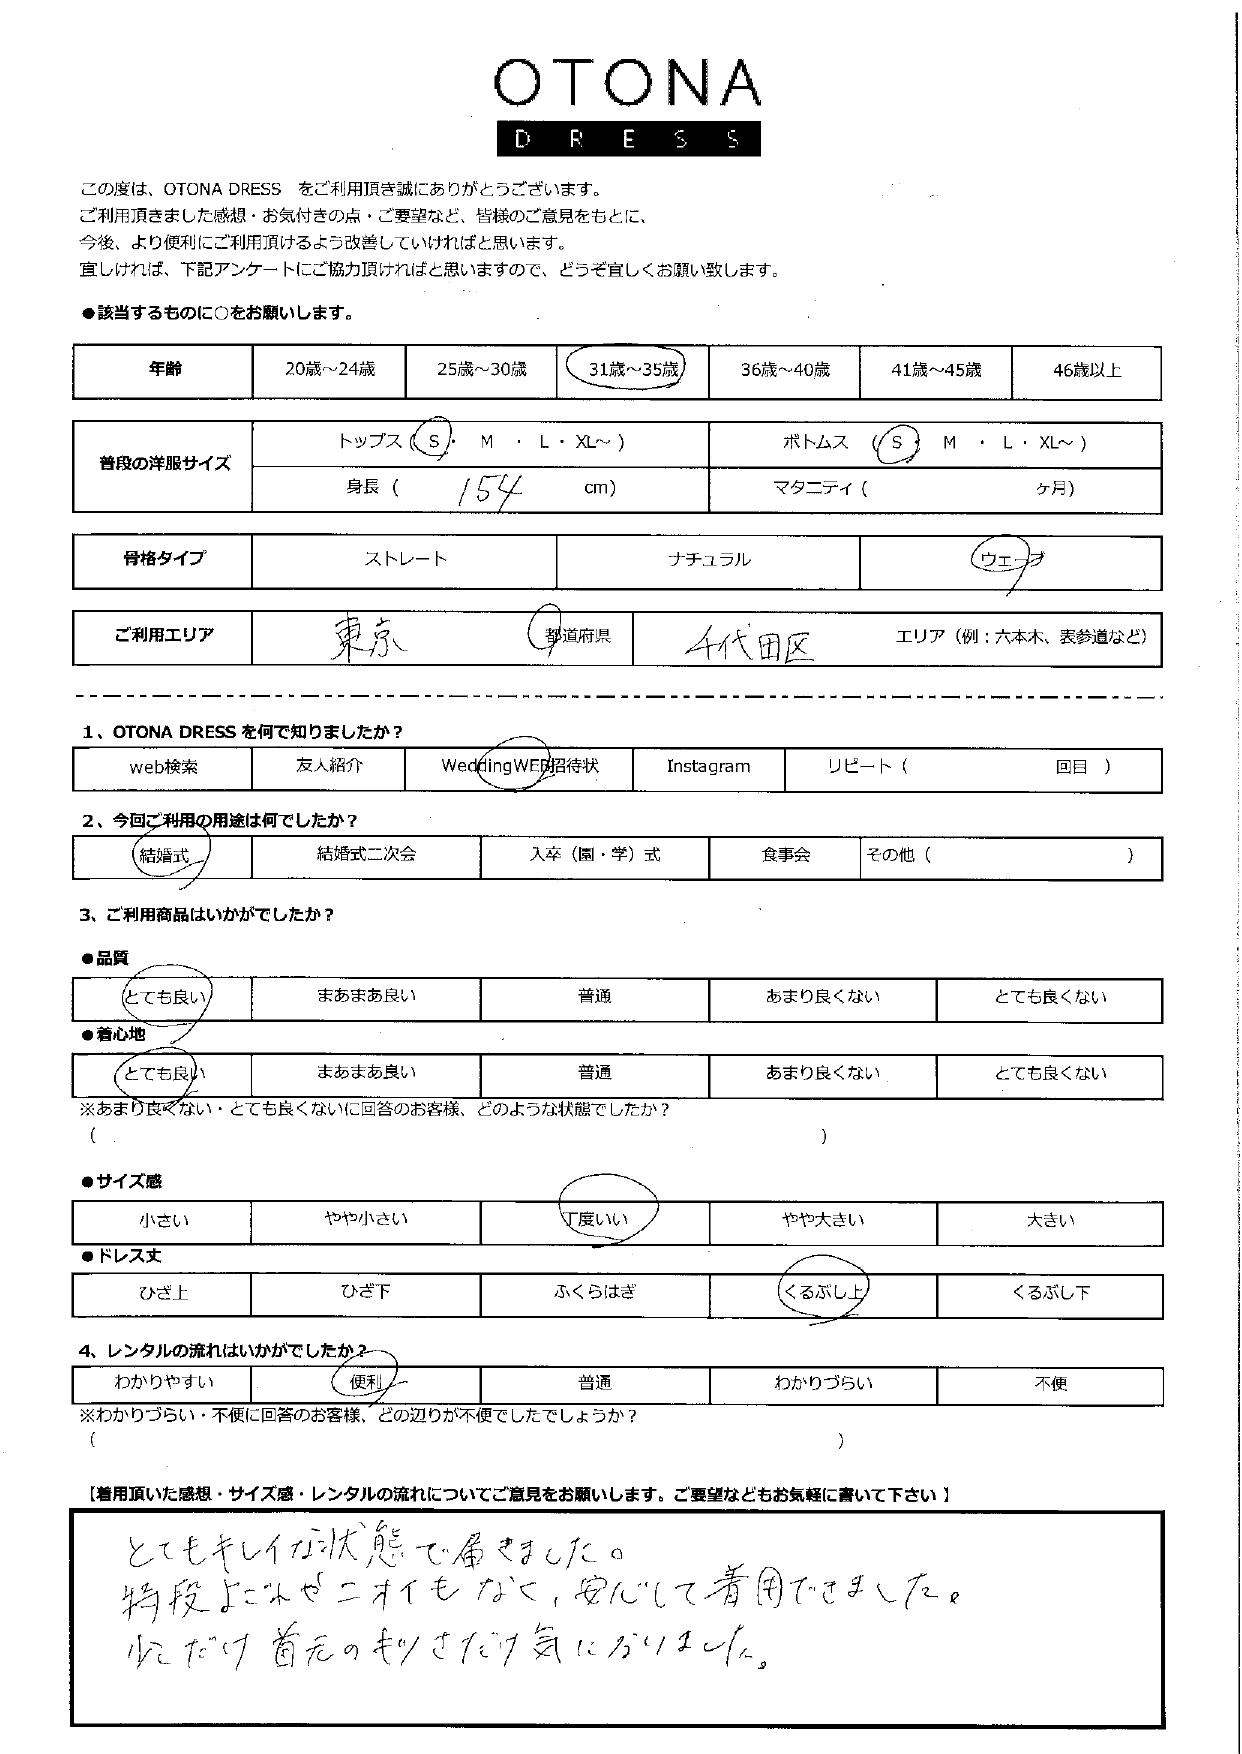 OTONA
DRESS
この度は、OTONA DRESS をご利用頂き誠にありがとうございます。
ご利用頂きました感想・お気付きの点・ご要望など、皆様のご意見をもとに、
今後、より便利にご利用頂けるよう改善していければと思います。
宜しければ、下記アンケートにご協力頂ければと思いますので、どうぞ宜しくお願い致します。
●該当するものに○をお願いします。
年齢 20歳～24歳 25歳～30歳 31歳～35歳 36歳～40歳 41歳～45歳 46歳以上
普段の洋服サイズ トップス ( S ・ M ・ L ・ XL～ ) ボトムス ( S ・ M ・ L ・ XL～ )
身長 ( 154 cm) マタニティ ( ヶ月)
骨格タイプ ストレート ナチュラル ウェーブ
ご利用エリア 東京 都道府県 千代田区 エリア（例：六本木、表参道など）
1、OTONA DRESS を何で知りましたか？
web検索 友人紹介 WeddingWEB招待状 Instagram リピート ( 回目 )
2、今回ご利用の用途は何でしたか？
結婚式 結婚式二次会 入卒（園・学）式 食事会 その他 ( )
3、ご利用商品はいかがでしたか？
●品質
とても良い まあまあ良い 普通 あまり良くない とても良くない
●着心地
とても良い まあまあ良い 普通 あまり良くない とても良くない
※あまり良くない・とても良くないに回答のお客様、どのような状態でしたか？
( )
●サイズ感
小さい やや小さい 丁度いい やや大きい 大きい
●ドレス丈
ひざ上 ひざ下 ふくらはぎ くるぶし上 くるぶし下
4、レンタルの流れはいかがでしたか？
わかりやすい 便利 普通 わかりづらい 不便
※わかりづらい・不便に回答のお客様、どの辺りが不便でしたでしょうか？
( )
【着用頂いた感想・サイズ感・レンタルの流れについてご意見をお願いします。ご要望などもお気軽に書いて下さい】
とてもキレイな状態で届きました。
特段よごれやニオイもなく、安心して着用できました。
少しだけ首元のキツさだけ気になりました。